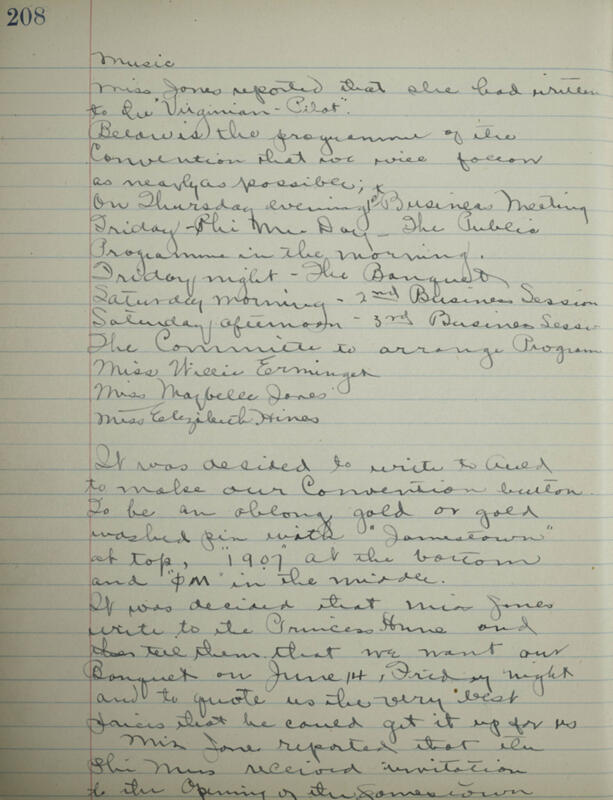 208
Music
Miss Jones reported that she had written
to the "Virginian-Pilot".
(Below is) the programme of the
Convention that we will follow
as nearly as possible;
On Thursday evening 1st Business Meeting
Friday - Phi Mu Day - The Public
Programme in the morning.
Friday night - The Banquet
Saturday morning - 2nd Business Session
Saturday afternoon - 3rd Business Sessi
The Committe to arrange Program
Miss Willie Erminger
Miss Maybelle Jones
Miss Elizabeth Hines
It was decided to write to Auld
to make our Convention button
To be an oblong gold or gold
washed pin with "Jamestown"
at top, "1907" at the bottom
and "ΦM" in the middle.
It was decided that Miss Jones
write to the Princess Anne and
tell them that we want our
Banquet on June 14, Friday night
and to quote us the very best
prices that he could get it up for us
Miss Jone reported that the
Phi Mus received invitation
to the Opening of the Jamestown